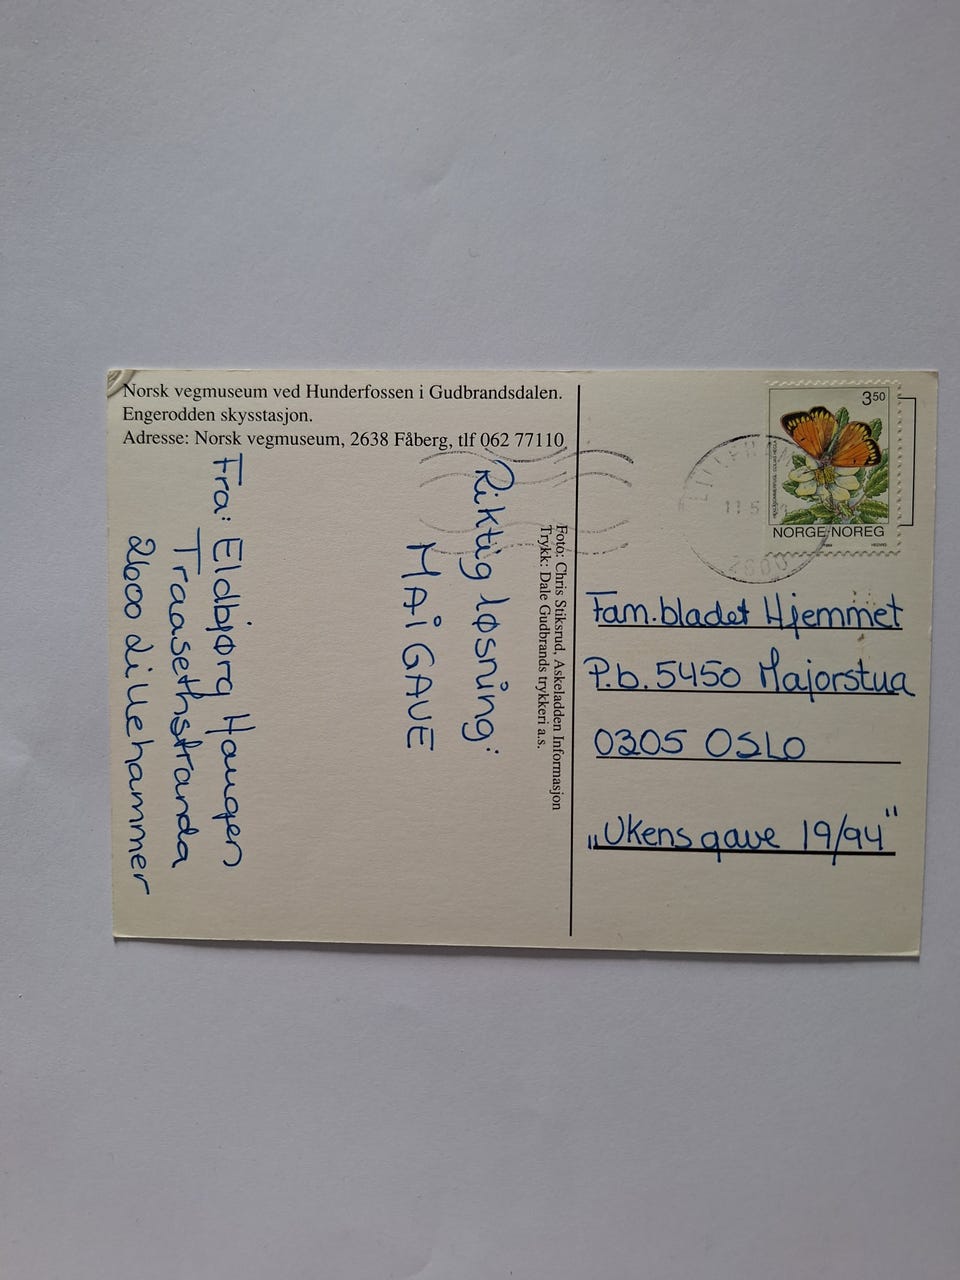 Norsk vegmuseum ved Hunderfossen i Gudbrandsdalen.
Engerodden skysstasjon.
Adresse: Norsk vegmuseum, 2638 Fåberg, tlf 062 77110
Riktig løsning:
MAI GAVE
Fra: Eldbjørg Haugen
Traasethstranda
2600 Lillehammer
Foto: Chris Stiksrud, Askeladden Informasjon
Trykk: Dale Gudbrands trykkeri a.s.
350
NORGE·NOREG
11 5
2600
Fam.bladet Hjemmet
P.b. 5450 Majorstua
0305 OSLO
„Ukens gave 19/94"